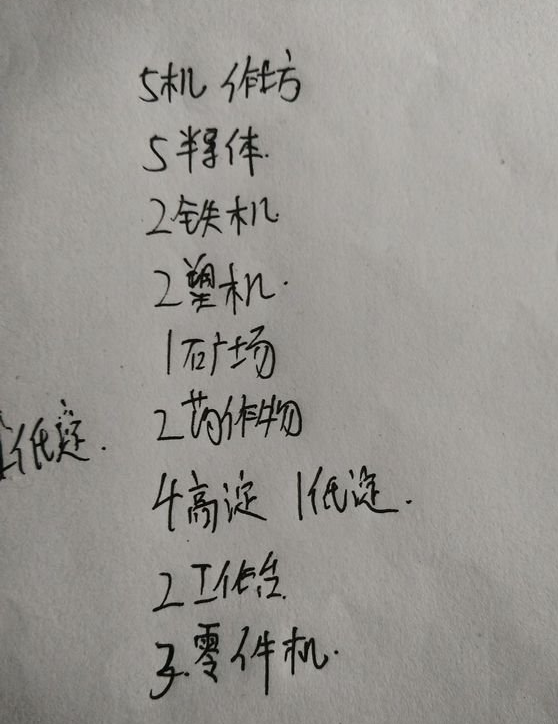 5机 作坊
5半导体.
2铁机
2塑机.
1石广场
2药作物
低淀.
4高淀 1低淀.
2工作台.
3.零件机.